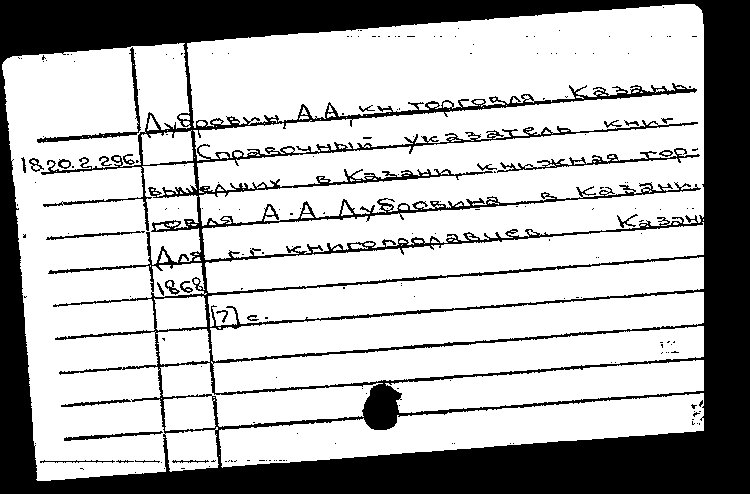 Дубровин, А.А., кн. торговля Казань.
18.20.2.296. Справочный указатель книг
вышедших в Казани, книжная тор-
говля А.А. Дубровина в Казани.
Для г.г. книгопродавцев. Казань
1868
[7] с.